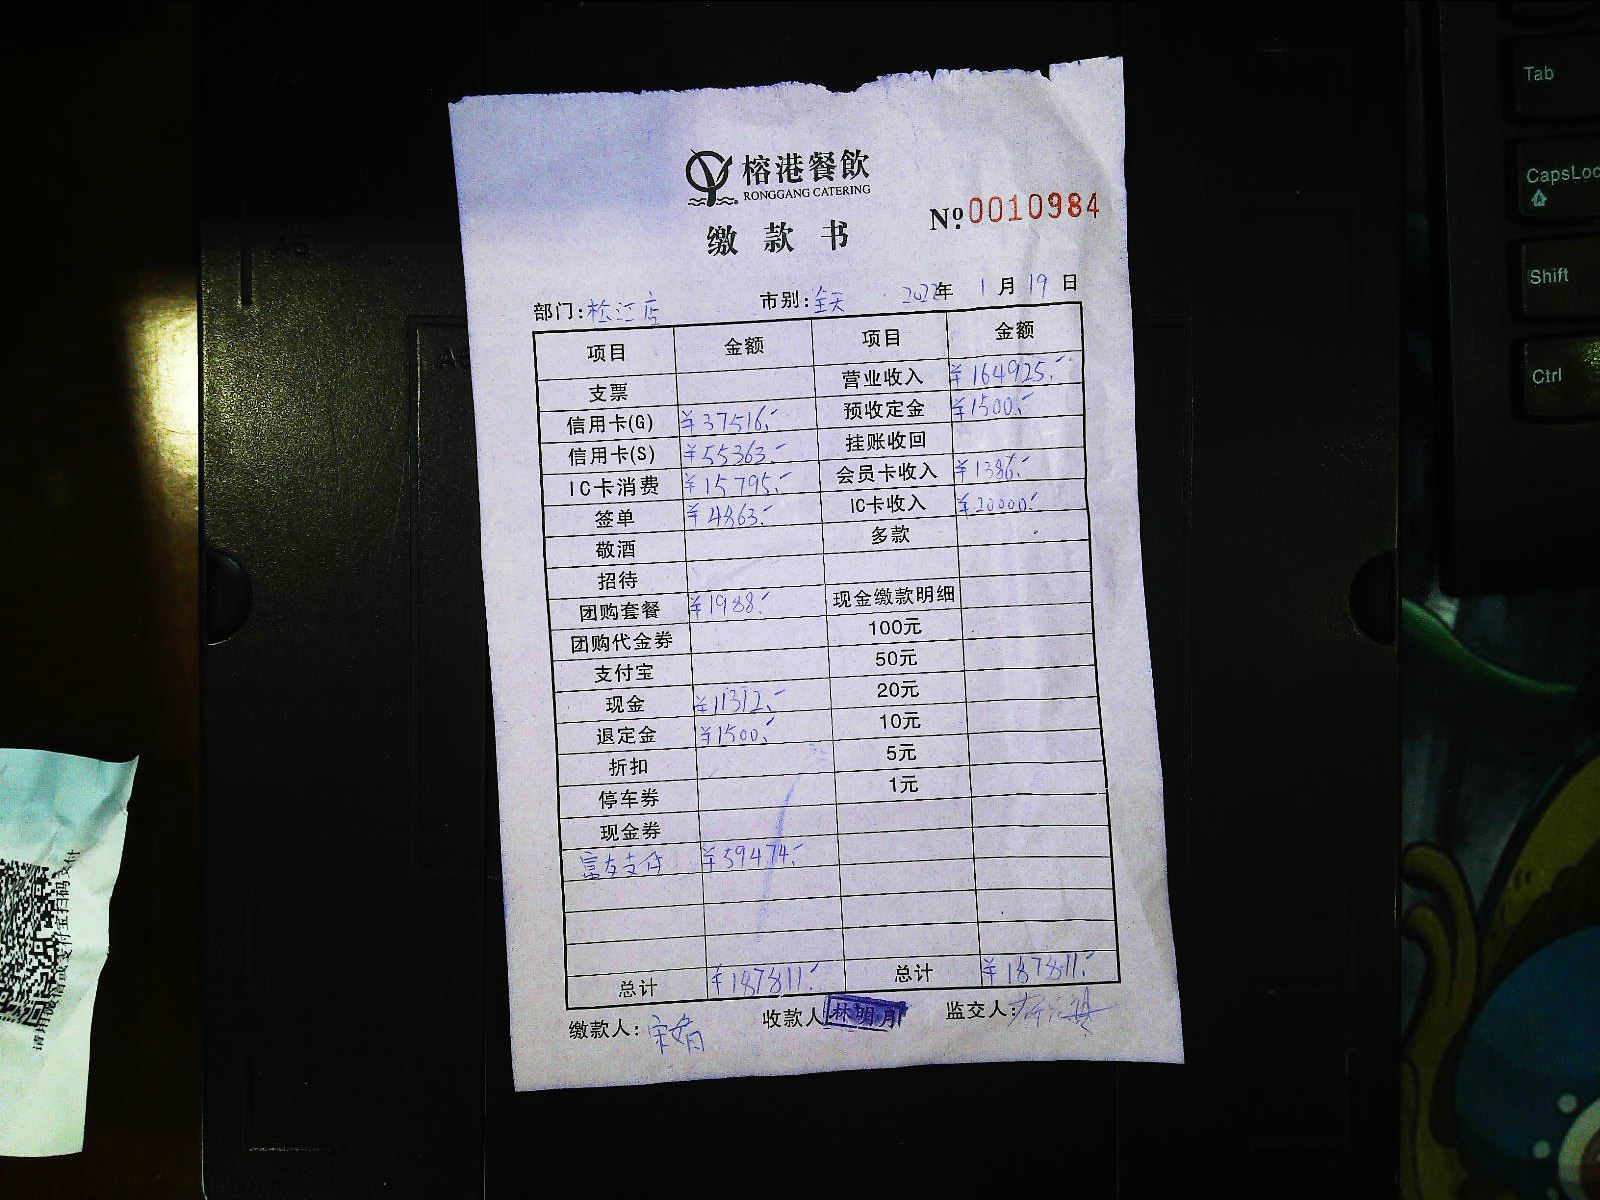 榕港餐飲
RONGGANG CATERING
缴款书
Nº.0010984
部门:松江店 市别:全天 2022年 1月19日
项目 金额 项目 金额
支票 营业收入 ¥164925.-
信用卡(G) ¥37516.- 预收定金 ¥1500.-
信用卡(S) ¥55363.- 挂账收回
IC卡消费 ¥15795.- 会员卡收入 ¥1386.-
签单 ¥4863.- IC卡收入 ¥20000.-
敬酒 多款
招待
团购套餐 ¥1988.- 现金缴款明细
团购代金券 100元
支付宝 50元
现金 ¥11312.- 20元
退定金 ¥1500.- 10元
折扣 5元
停车券 1元
现金券
富友支付 ¥59474.-
总计 ¥187811.- 总计 ¥187811.-
缴款人:宋娟 收款人 林明月 监交人:
请用微信或支付宝扫码支付
A5
Tab
CapsLoc
Shift
Ctrl